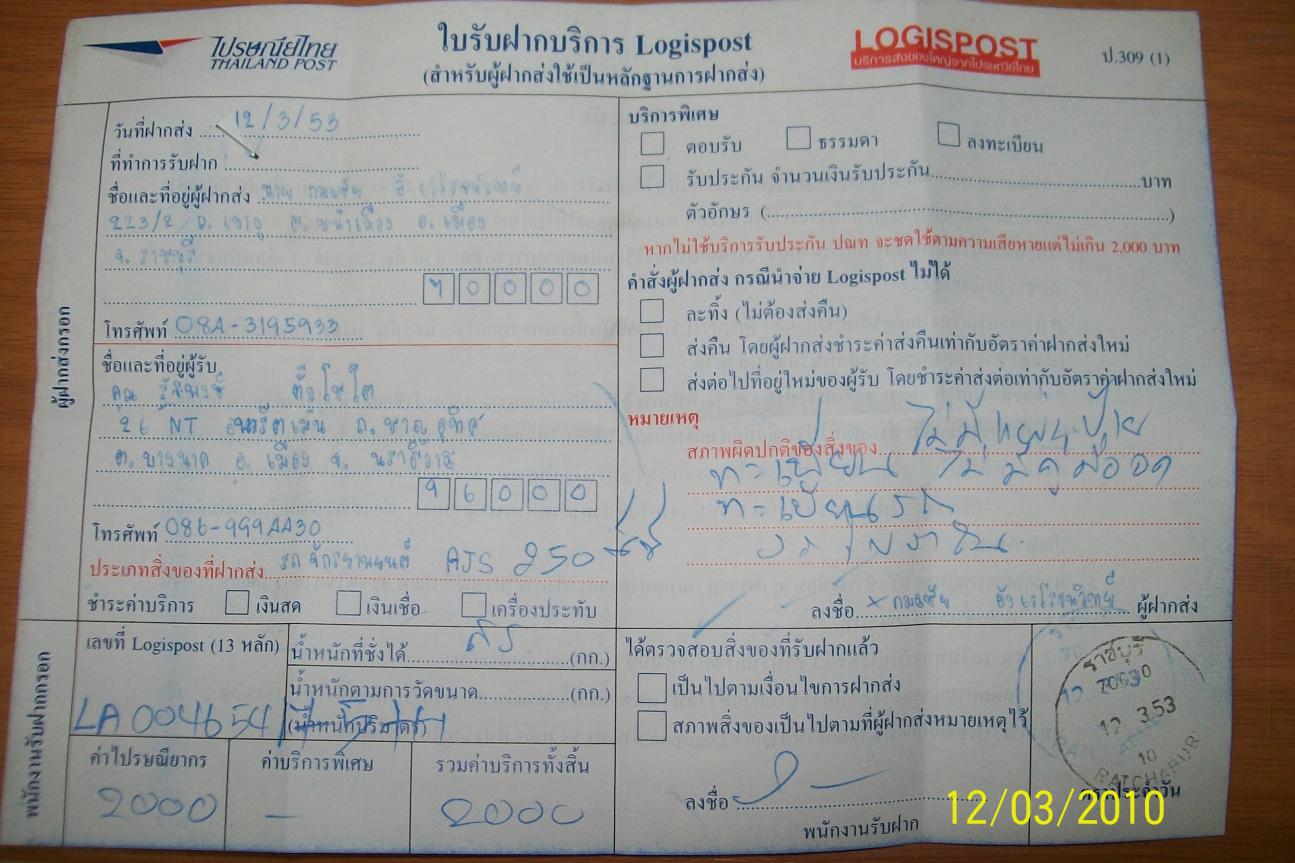 ไปรษณีย์ไทย
THAILAND POST
ใบรับฝากบริการ Logispost
(สำหรับผู้ฝากส่งใช้เป็นหลักฐานการฝากส่ง)
LOGISPOST
บริการส่งของใหญ่จากไปรษณีย์ไทย
ป.309 (1)
ผู้ฝากส่งกรอก
วันที่ฝากส่ง 12/3/53
ที่ทำการรับฝาก
ชื่อและที่อยู่ผู้ฝากส่ง นาย กมลชัย
223/2 ถ. เขางู ต. หน้าเมือง อ. เมือง
จ. ราชบุรี
70000
โทรศัพท์ 084-3195933
ชื่อและที่อยู่ผู้รับ
คุณ ตั้งโชโต
26 NT
ต. บางนาค อ. เมือง จ. นราธิวาส
96000
โทรศัพท์ 086-9994430
ประเภทสิ่งของที่ฝากส่ง รถจักรยานยนต์ AJS 250 ซีซี
ชำระค่าบริการ เงินสด เงินเชื่อ เครื่องประทับ
บริการพิเศษ
ตอบรับ ธรรมดา ลงทะเบียน
รับประกัน จำนวนเงินรับประกัน บาท
ตัวอักษร ( )
หากไม่ใช้บริการรับประกัน ปณท จะชดใช้ตามความเสียหายแต่ไม่เกิน 2,000 บาท
คำสั่งผู้ฝากส่ง กรณีนำจ่าย Logispost ไม่ได้
ละทิ้ง (ไม่ต้องส่งคืน)
ส่งคืน โดยผู้ฝากส่งชำระค่าส่งคืนเท่ากับอัตราค่าฝากส่งใหม่
ส่งต่อไปที่อยู่ใหม่ของผู้รับ โดยชำระค่าส่งต่อเท่ากับอัตราค่าฝากส่งใหม่
หมายเหตุ
สภาพผิดปกติของสิ่งของ ไม่มีแผ่นป้าย
ทะเบียน ไม่มีคู่มือจด
ทะเบียนรถ
ลงชื่อ กมลชัย ผู้ฝากส่ง
พนักงานรับฝากกรอก
เลขที่ Logispost (13 หลัก)
LA004654
น้ำหนักที่ชั่งได้ (กก.)
น้ำหนักตามการวัดขนาด (กก.)
(น้ำหนักปริมาตร)
ค่าไปรษณียากร
2000
ค่าบริการพิเศษ
-
รวมค่าบริการทั้งสิ้น
2000
ได้ตรวจสอบสิ่งของที่รับฝากแล้ว
เป็นไปตามเงื่อนไขการฝากส่ง
สภาพสิ่งของเป็นไปตามที่ผู้ฝากส่งหมายเหตุไว้
ลงชื่อ
พนักงานรับฝาก
ราชบุรี
12 3.53
10
RATCHABURI
ตราประจำวัน
12/03/2010